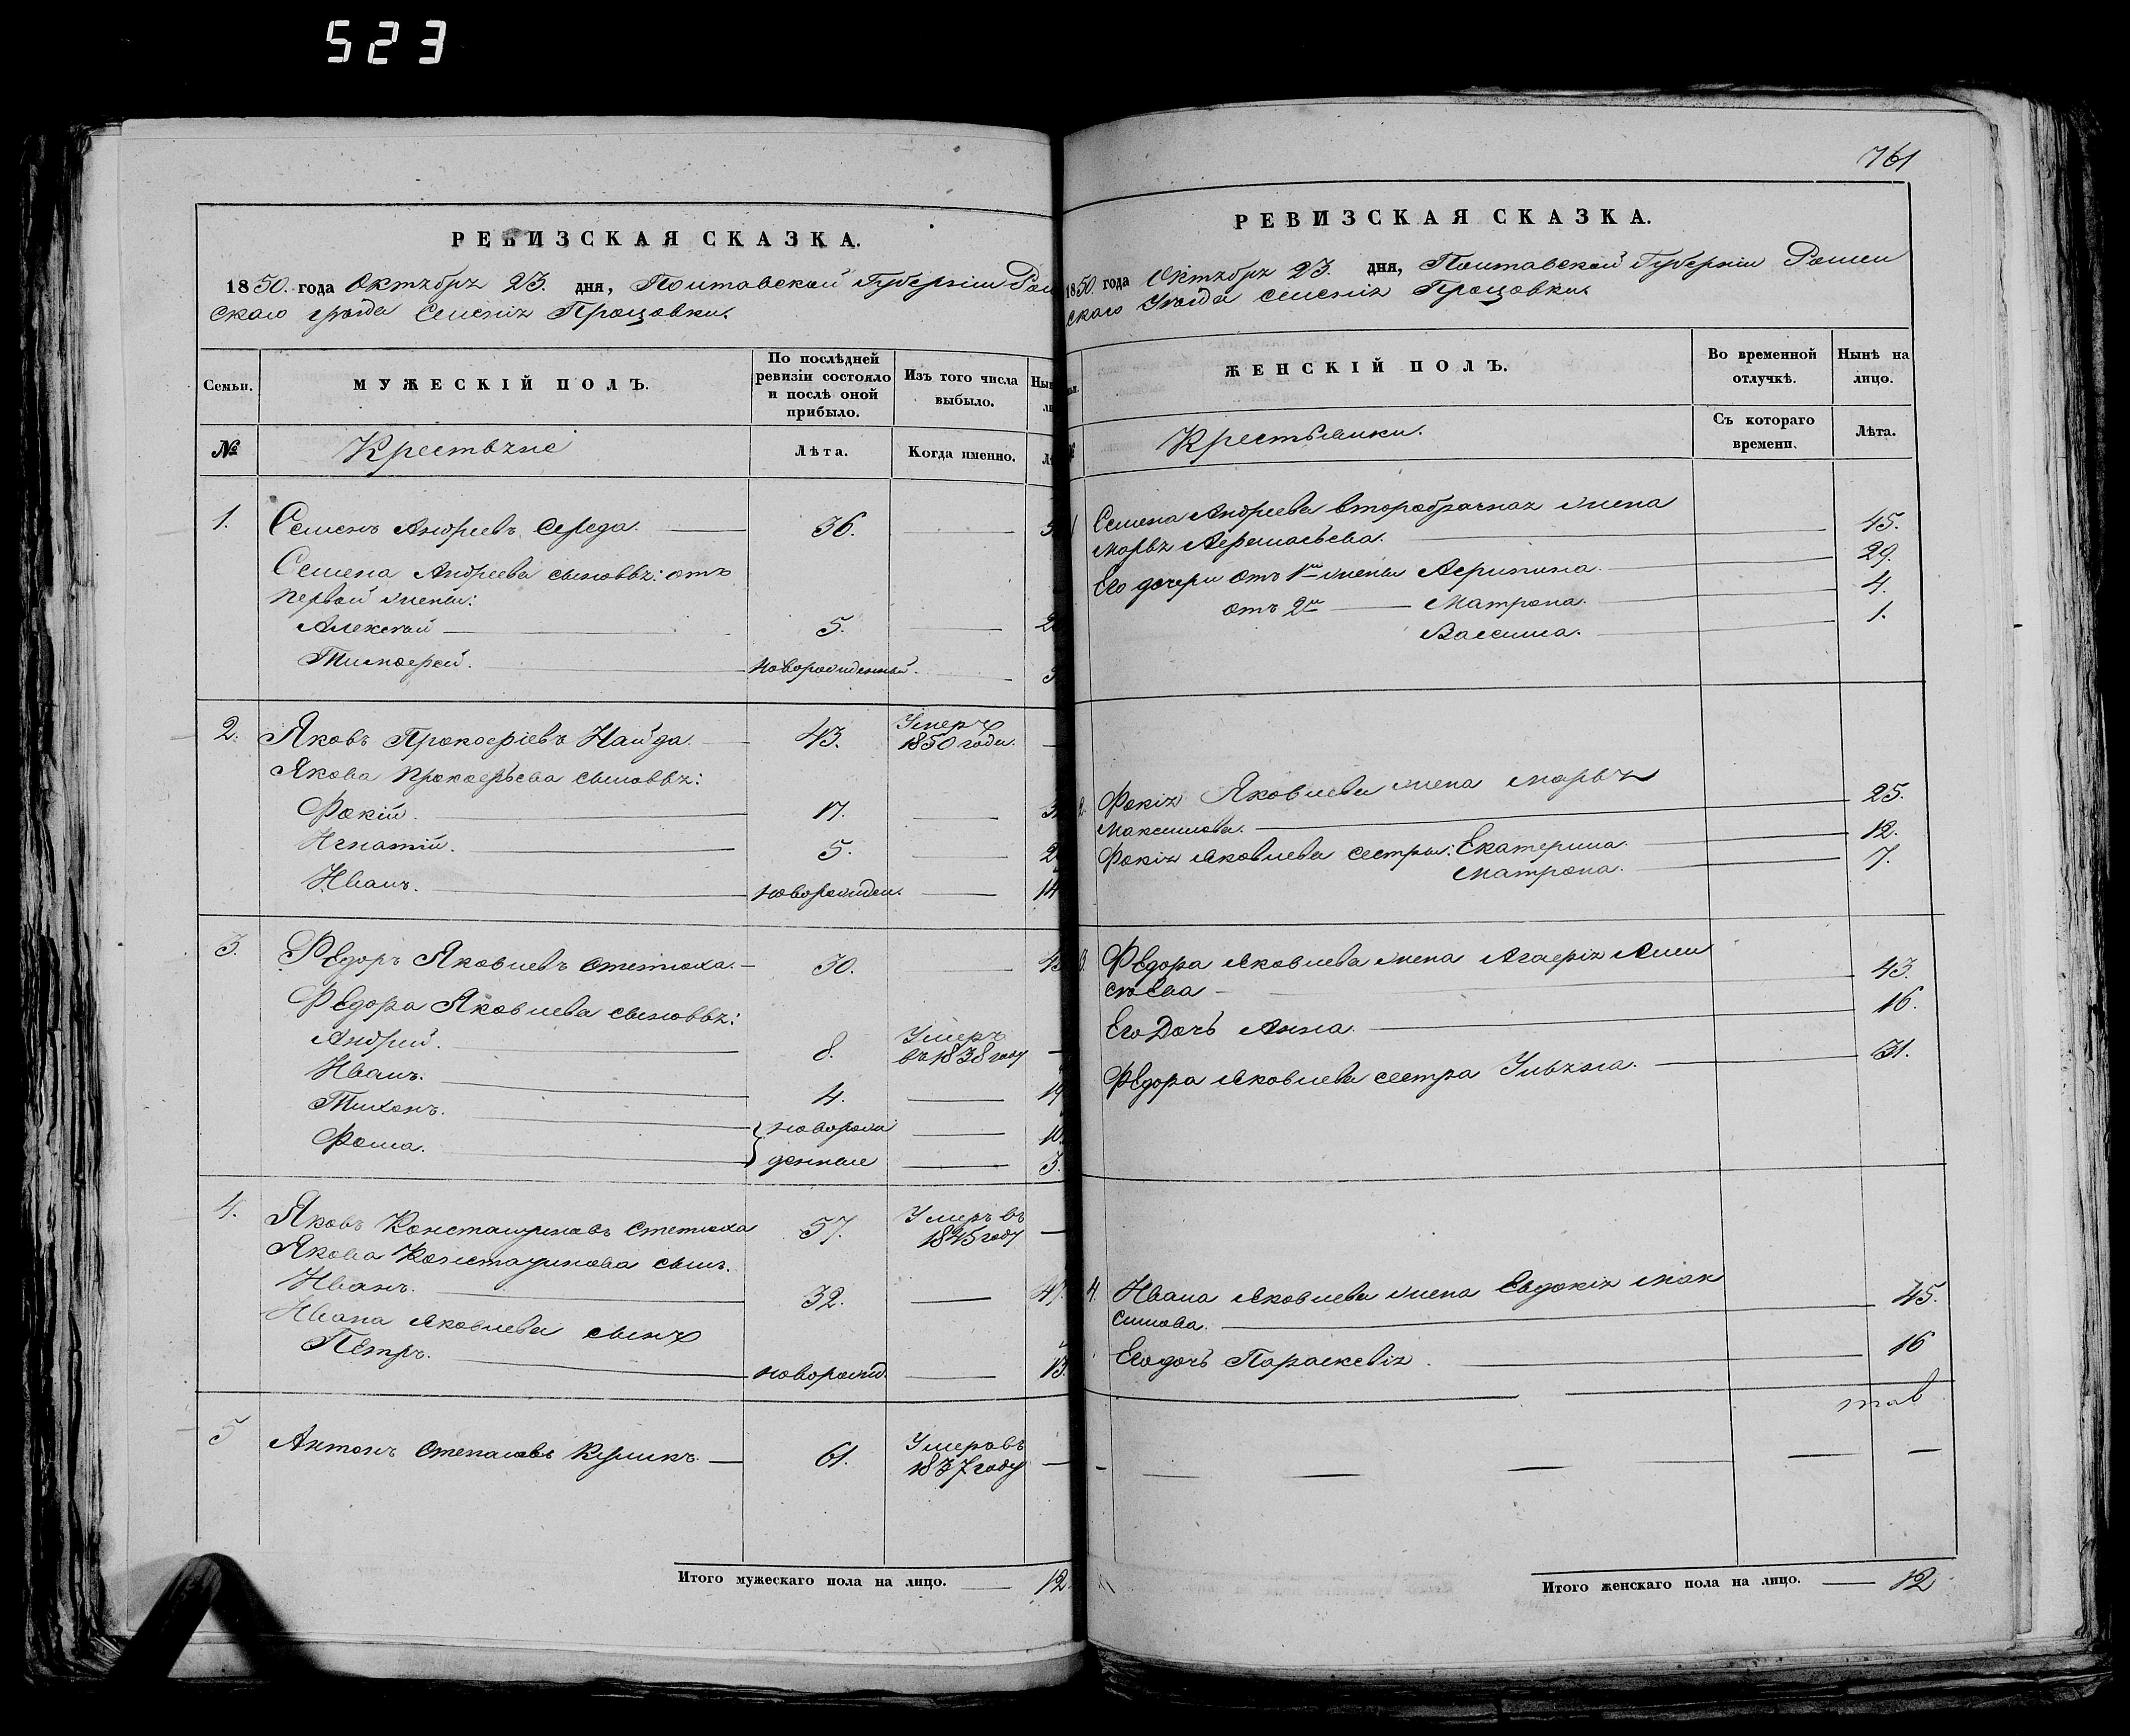 523
РЕВИЗСКАЯ СКАЗКА.
1850. года Октября 23. дня, Полтавской Губерніи Ром
скаго уѣзда селенія Процовки.
Семьи.
МУЖЕСКІЙ ПОЛЪ.
По послѣдней
ревизіи состояло
и послѣ оной
прибыло.
Изъ того числа
выбыло.
№
Крестьяне
Лѣта.
Когда именно.
1. Семенъ Андреевъ Середа. 36.
Семена Андреева сыновья: отъ
первой жены:
Алексѣй 5.
Тимофей. новорожденный.
2. Яковъ Прокофіевъ Найда. 43. Умеръ
1850 года.
Якова Прокофьева сыновья:
Фокій. 17.
Игнатій. 5.
Иванъ. новорожден. 14
3. Федоръ Яковлевъ Стетюха. 30.
Федора Яковлева сыновья:
Андрій. 8. Умеръ
въ 1838 году
Иванъ. 4. 19
Тихонъ. новорож 10.
Фома. денные 5.
4. Яковъ Константиновъ Стетюха 57. Умеръ въ
1845 году
Якова Константинова сынъ.
Иванъ. 32. 47.
Ивана Яковлева сынъ
Петръ. новорожд. 13.
5 Антонъ Степановъ 61. Умеръ въ
1837 году
Итого мужескаго пола на лицо. 12
761
РЕВИЗСКАЯ СКАЗКА.
1850. года Октября 23. дня, Полтавской Губерніи Ромен
скаго Уѣзда селенія Процовки.
ЖЕНСКІЙ ПОЛЪ.
Во временной
отлучкѣ.
Нынѣ на
лицо.
Крестьянки.
Съ котораго
времени.
Лѣта.
1 Семена Андреева второбрачная жена
Марья 45.
Его дочери отъ 1й жены Агрипина. 29.
отъ 2й Матрона. 4.
Васса 1.
2. Фокія Яковлева жена Марья
Максимова. 25.
Фокія Яковлева сестры: Екатерина. 12.
Матрона. 7.
3. Федора Яковлева жена Агафія Алек
сѣева 43.
Его Дочь Анна. 16.
Федора Яковлева сестра Ульяна. 31.
4. Ивана Яковлева жена Евдокія Мак
симова. 45.
Его дочь Параскевія. 16
Итого женскаго пола на лицо. 12